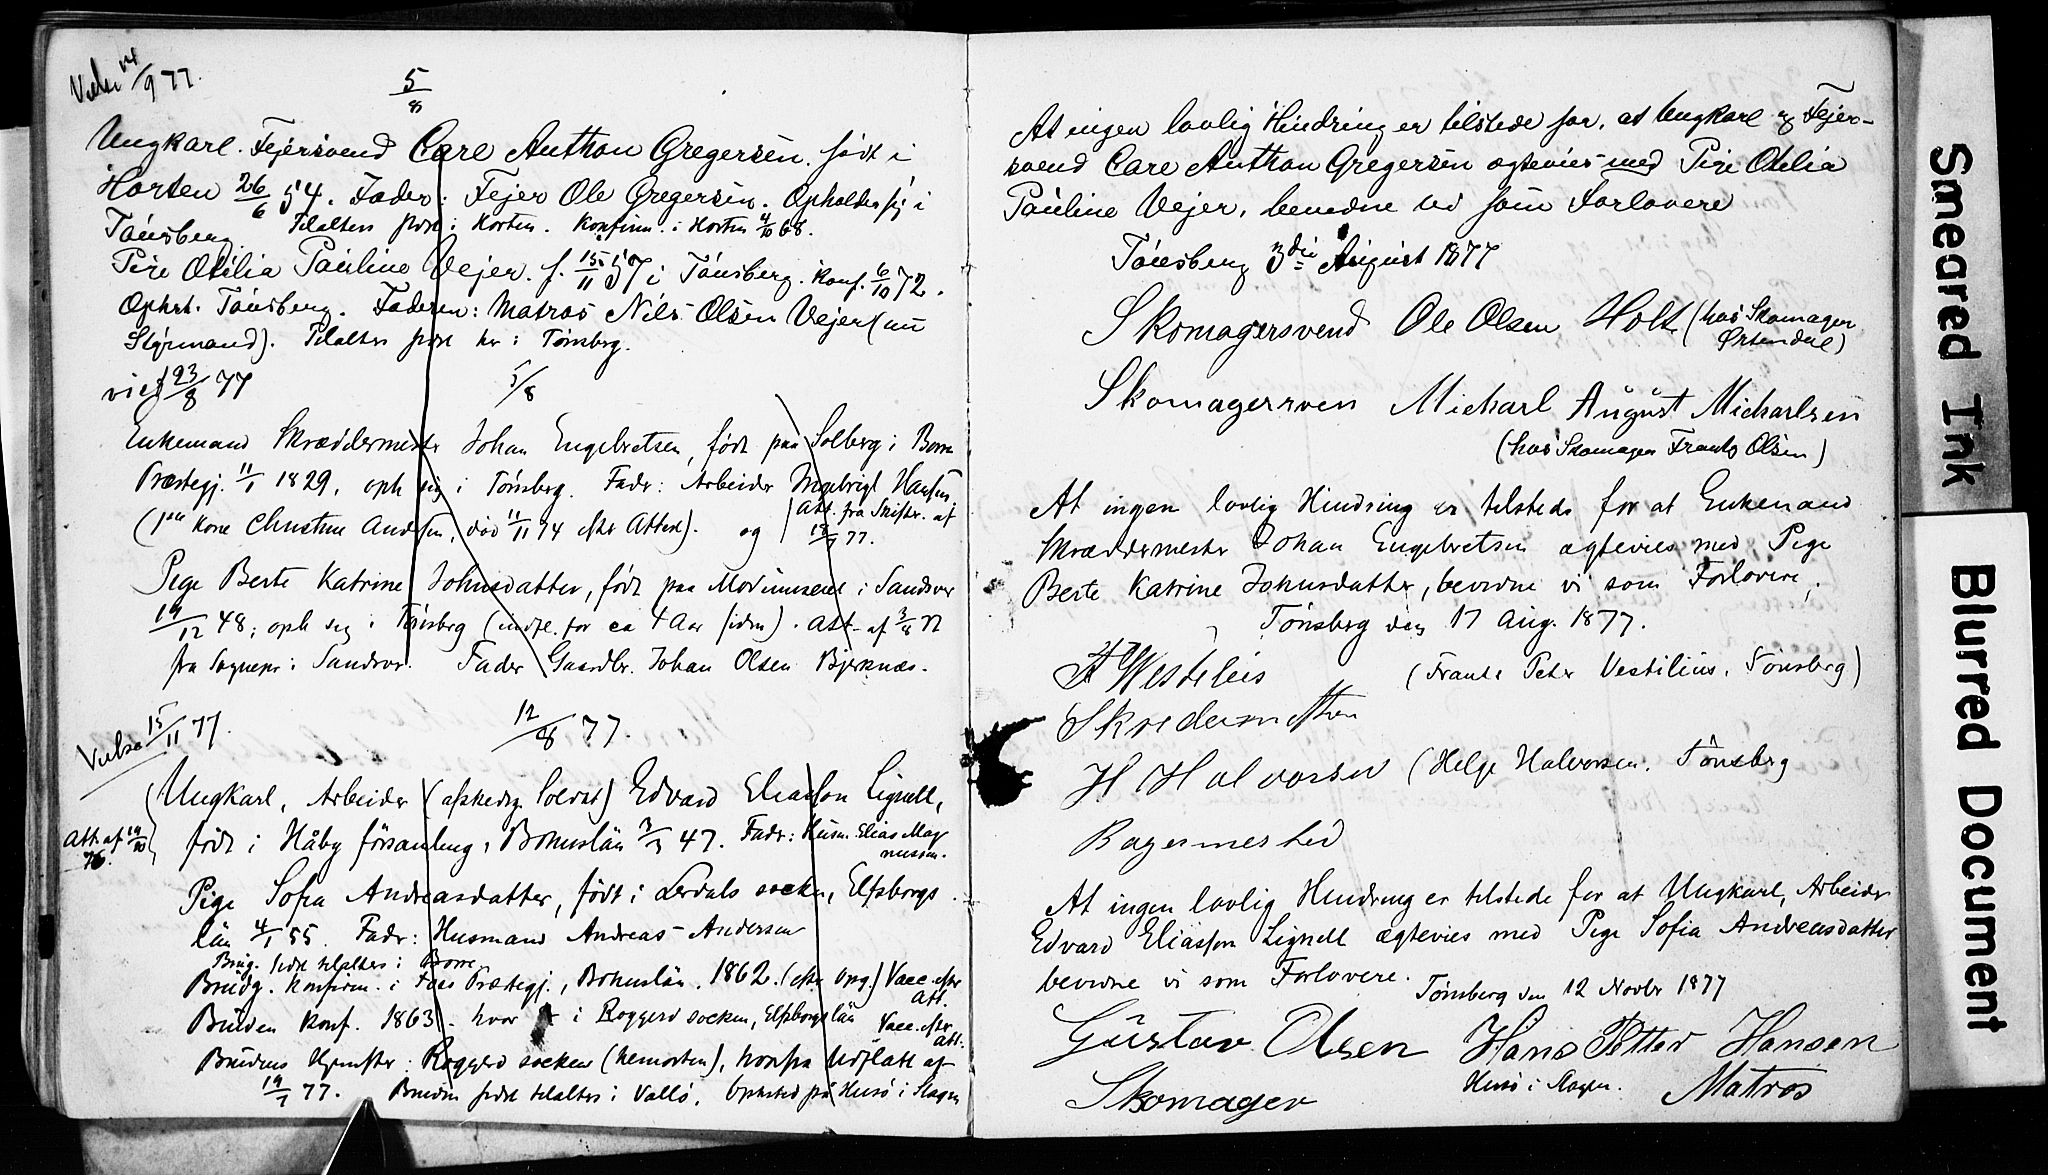 9 77.
5/8
Ungkarl. Fejersvend Carl Anthon Gregersen. født i
Horten 26/6 54. Fader: Fejer Ole Gregersen. Opholder sig i
Tönsberg. Tilaltes først i Horten. Konfirm. i Horten 4/10 68.
Pige Otilia Pauline Vejer. f. 15/11 57 i Tönsberg. Konf. 6/10 72.
Ophst. Tönsberg. Faderen: Matros Nils Olsen Vejer (nu
Styrmand). Tilaltes først her i Tønsberg.
viet 23/8 77
5/8
Enkemand Skræddermester Johan Engebretsen, født paa Solberg i Borre
Præstegj. 11/1 1829, oph sig i Tönsberg. Fader: Arbeider Ingebrigt Hansen.
(1ste Kone Christine Andersen, död 11/11 74 efter Attest). og
Att. fra Skifter. af
77.
Pige Berte Katrine Johnsdatter, født paa i Sandsvær
19/12 48; oph sig i Tönsberg (indfl. for ca 4 Aar siden). Att. af 3/8 77
fra Sognepr. i Sandsvær. Fader Gaardbr. Johan Olsen Bjerknæs.
15/11 77.
12/8 77.
Ungkarl, Arbeider (afskedig Soldat) Edvard Eliasson Lignell,
Att. af 19/10 76.
født i Håby församling, Bohuslän 3/3 47. Fader: Husm. Elias Mag
nussen.
Pige Sofia Andreasdatter, født i Lerdals socken, Elfsborgs
län 4/1 55. Fader: Husmand Andreas Andersen
Brudg. sidst tilaltes i Borre
Brudg. Konfirm. i Foss Præstegj., Bohuslän. 1862. (efter Opg.) Vacc. efter
Att.
Bruden Konf. 1863. hvor i Roggerd socken, Elfsborgs län Vacc. efter
Att.
Brudens Hjemster: Roggerd socken (hemorten), hvorfra Udfl. att af
19/7 77. Bruden sidst tilaltes i Vallö. Opholdsted på Husö i Slagen
At ingen lovlig Hindring er tilstede for, at Ungkarl og Fejer-
svend Carl Anthon Gregersen ægtevies med Pige Otilia
Pauline Vejer, bevidne vi som Forlovere
Tönsberg 3die August 1877
Skomagersvend Ole Olsen Holt (hos Skomager
Ørtendal)
Skomagersven Michael August Michaelsen
(hos Skomager Frants Olsen)
At ingen lovlig Hindring er tilstede for at Enkemand
Skræddermester Johan Engebretsen ægtevies med Pige
Berte Katrine Johnsdatter, bevidne vi som Forlovere;
Tönsberg den 17 Aug. 1877.
(Frants Peter Vestilius. Tönsberg)
H Halvorsen (Helge Halvorsen. Tönsberg
Bagermester
At ingen lovlig Hindring er tilstede for at Ungkarl, Arbeider
Edvard Eliasson Lignell ægtevies med Pige Sofia Andreasdatter
bevidne vi som Forlovere.
Tønsberg den 12 Novbr 1877
Gustav Olsen Hans Petter Hansen
Husö i Slagen. Matros
Skomager
Smeared Ink
Blurred Document